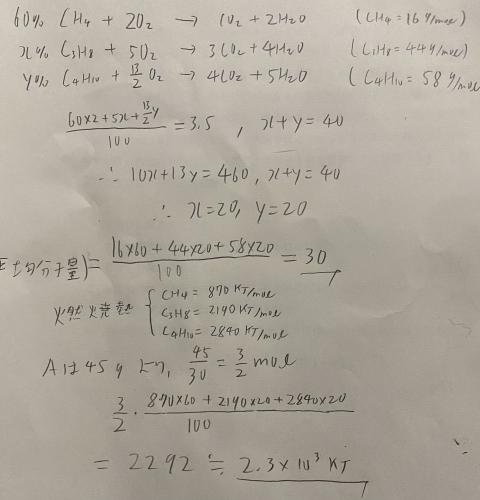 60% CH4 + 2O2 → CO2 + 2H2O (CH4 = 16 g/mol)
x% C3H8 + 5O2 → 3CO2 + 4H2O (C3H8 = 44 g/mol)
y% C4H10 + 13/2 O2 → 4CO2 + 5H2O (C4H10 = 58 g/mol
(60×2+5x+13/2y)/100 = 3.5 , x+y = 40
∴ 10x+13y=460, x+y=40
∴ x=20, y=20
平均分子量) = (16×60 + 44×20 + 58×20)/100 = 30
燃焼熱 { CH4 = 870 KJ/mol
C3H8 = 2190 KJ/mol
C4H10 = 2840 KJ/mol
Aは45gより, 45/30 = 3/2 mol
3/2 · (870×60 + 2190×20 + 2840×20)/100
= 2292 ≒ 2.3×10³ KJ